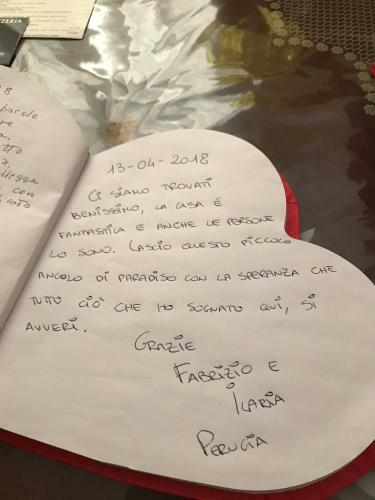 ZZERIA
18
parole
re
a.
tto
a,
llezza
, con
i loro
13-04-2018
CI SIAMO TROVATI
BENISSIMO, LA CASA È
FANTASTICA E ANCHE LE PERSONE
LO SONO. LASCIO QUESTO PICCOLO
ANGOLO DI PARADISO CON LA SPERANZA CHE
TUTTO CIÒ CHE HO SOGNATO QUI, SI
AVVERI.
GRAZIE
FABRIZIO E
ILARIA
PERUGIA